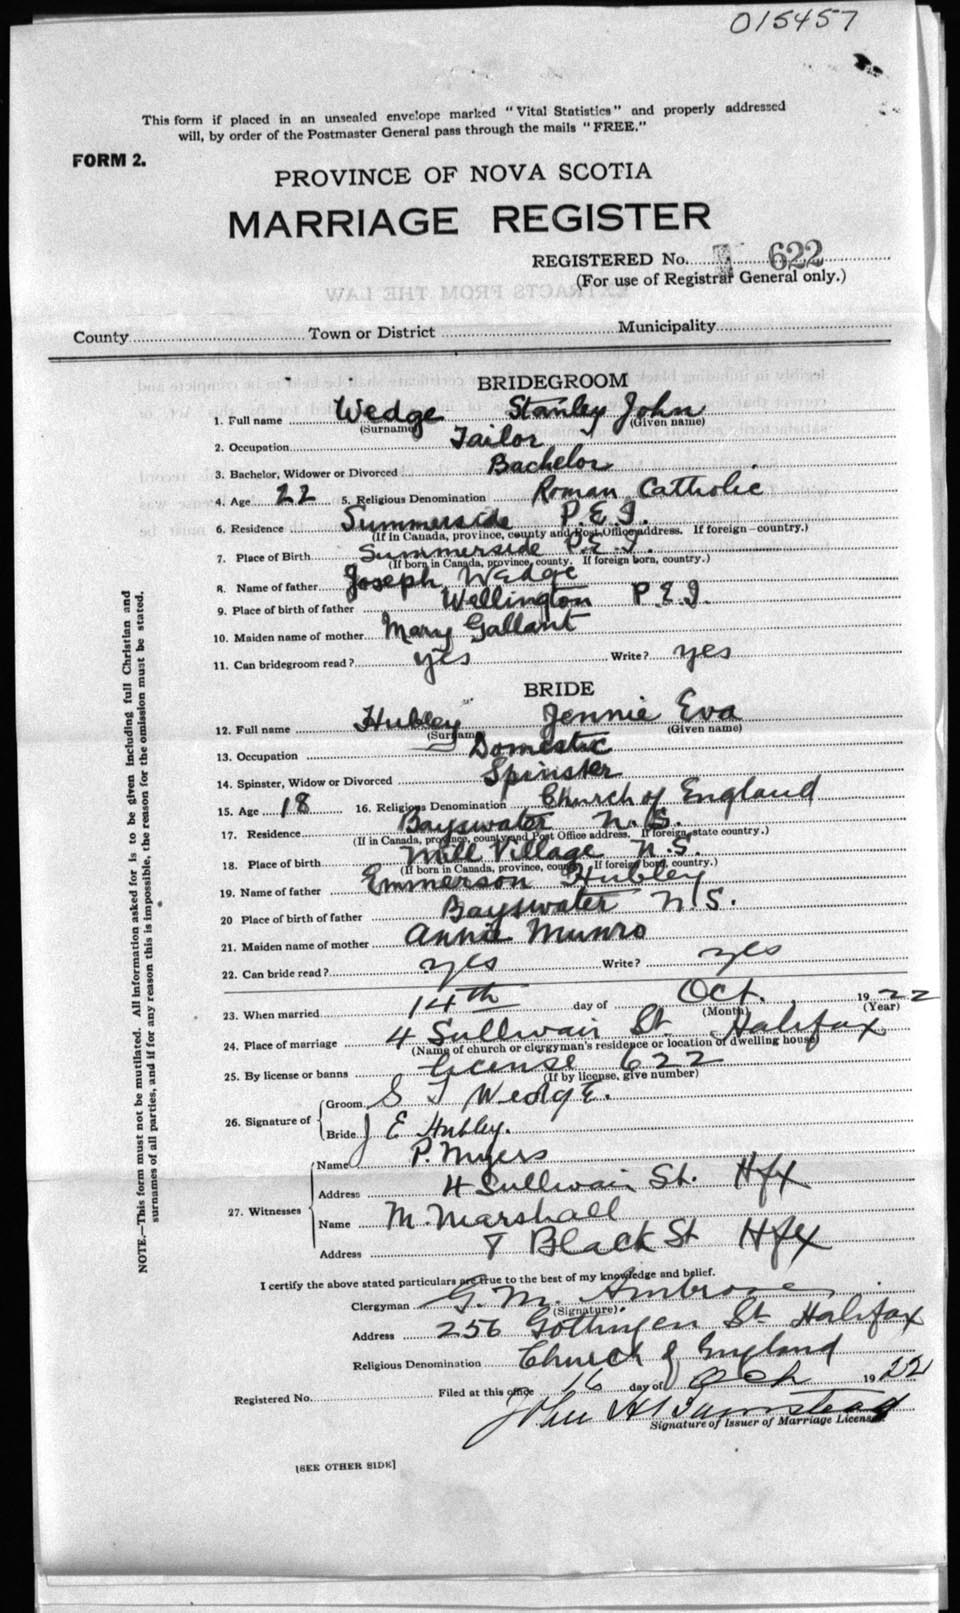 015457
This form if placed in an unsealed envelope marked "Vital Statistics" and properly addressed
will, by order of the Postmaster General pass through the mails "FREE."
FORM 2.
PROVINCE OF NOVA SCOTIA
MARRIAGE REGISTER
REGISTERED No. 622
(For use of Registrar General only.)
EXTRACTS FROM THE LAW
County Town or District Municipality
BRIDEGROOM
1. Full name Wedge Stanley John
(Surname) (Given name)
2. Occupation Tailor
3. Bachelor, Widower or Divorced Bachelor
4. Age 22 5. Religious Denomination Roman Catholic
6. Residence Summerside P.E.I.
(If in Canada, province, county and Post Office address. If foreign—country.)
7. Place of Birth Summerside P.E.I.
(If born in Canada, province, county. If foreign born, country.)
8. Name of father Joseph Wedge
9. Place of birth of father Wellington P.E.I.
10. Maiden name of mother Mary Gallant
11. Can bridegroom read? yes Write? yes
BRIDE
12. Full name Hubley Jennie Eva
(Surname) (Given name)
13. Occupation Domestic
14. Spinster, Widow or Divorced Spinster
15. Age 18 16. Religious Denomination Church of England
17. Residence Bayswater N.S.
(If in Canada, province, county and Post Office address. If foreign, state country.)
18. Place of birth Mill Village N.S.
(If born in Canada, province, county. If foreign born, country.)
19. Name of father Emmerson Hubley
20 Place of birth of father Bayswater N.S.
21. Maiden name of mother Annie Munro
22. Can bride read? yes Write? yes
23. When married 14th day of Oct. 1922
(Month) (Year)
24. Place of marriage 4 Sullivan St. Halifax
(Name of church or clergyman's residence or location of dwelling house)
25. By license or banns license 622
(If by license, give number)
26. Signature of
Groom S J Wedge.
Bride J E Hubley.
27. Witnesses
Name P. Myers
Address 4 Sullivan St. Hfx
Name M. Marshall
Address 8 Black St Hfx
I certify the above stated particulars are true to the best of my knowledge and belief.
Clergyman G. M. Ambrose
(Signature)
Address 256 Gottingen St Halifax
Religious Denomination Church of England
Registered No. Filed at this office 16 day of Oct 1922
John H
Signature of Issuer of Marriage License
[SEE OTHER SIDE]
NOTE.—This form must not be mutilated. All information asked for is to be given including full Christian and
surnames of all parties, and if for any reason this is impossible, the reason for the omission must be stated.